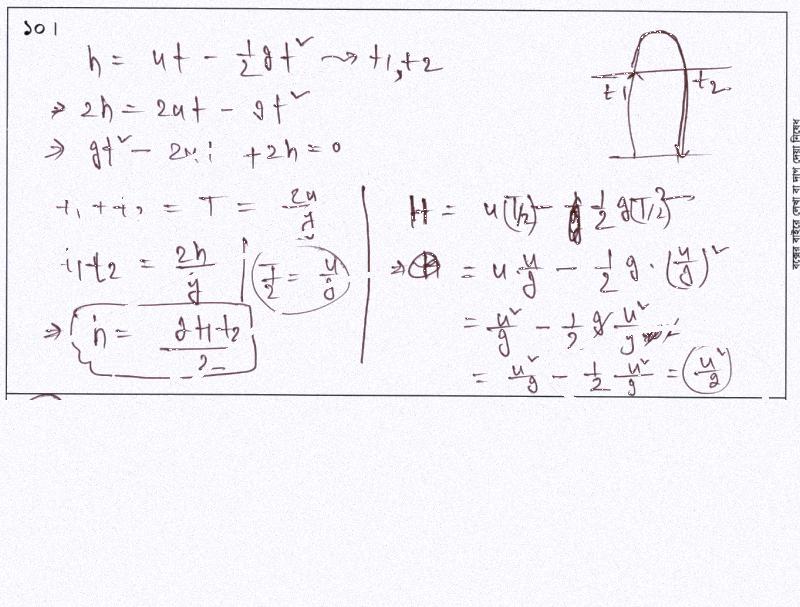 ১০।
h = ut - ½gt² → t₁, t₂
⇒ 2h = 2ut - gt²
⇒ gt² - 2u + 2h = 0
t₁ + t₂ = T = 2u/g
t₁t₂ = 2h/g
T/2 = u/g
⇒ h = gt₁t₂/2
H = u(T/2) - ½g(T/2)²
⇒ = u·u/g - ½g·(u/g)²
= u²/g - ½g u²/g
= u²/g - ½ u²/g = u²/g
t₁ t₂
বক্সের বাইরে লেখা বা দাগ দেয়া নিষেধ